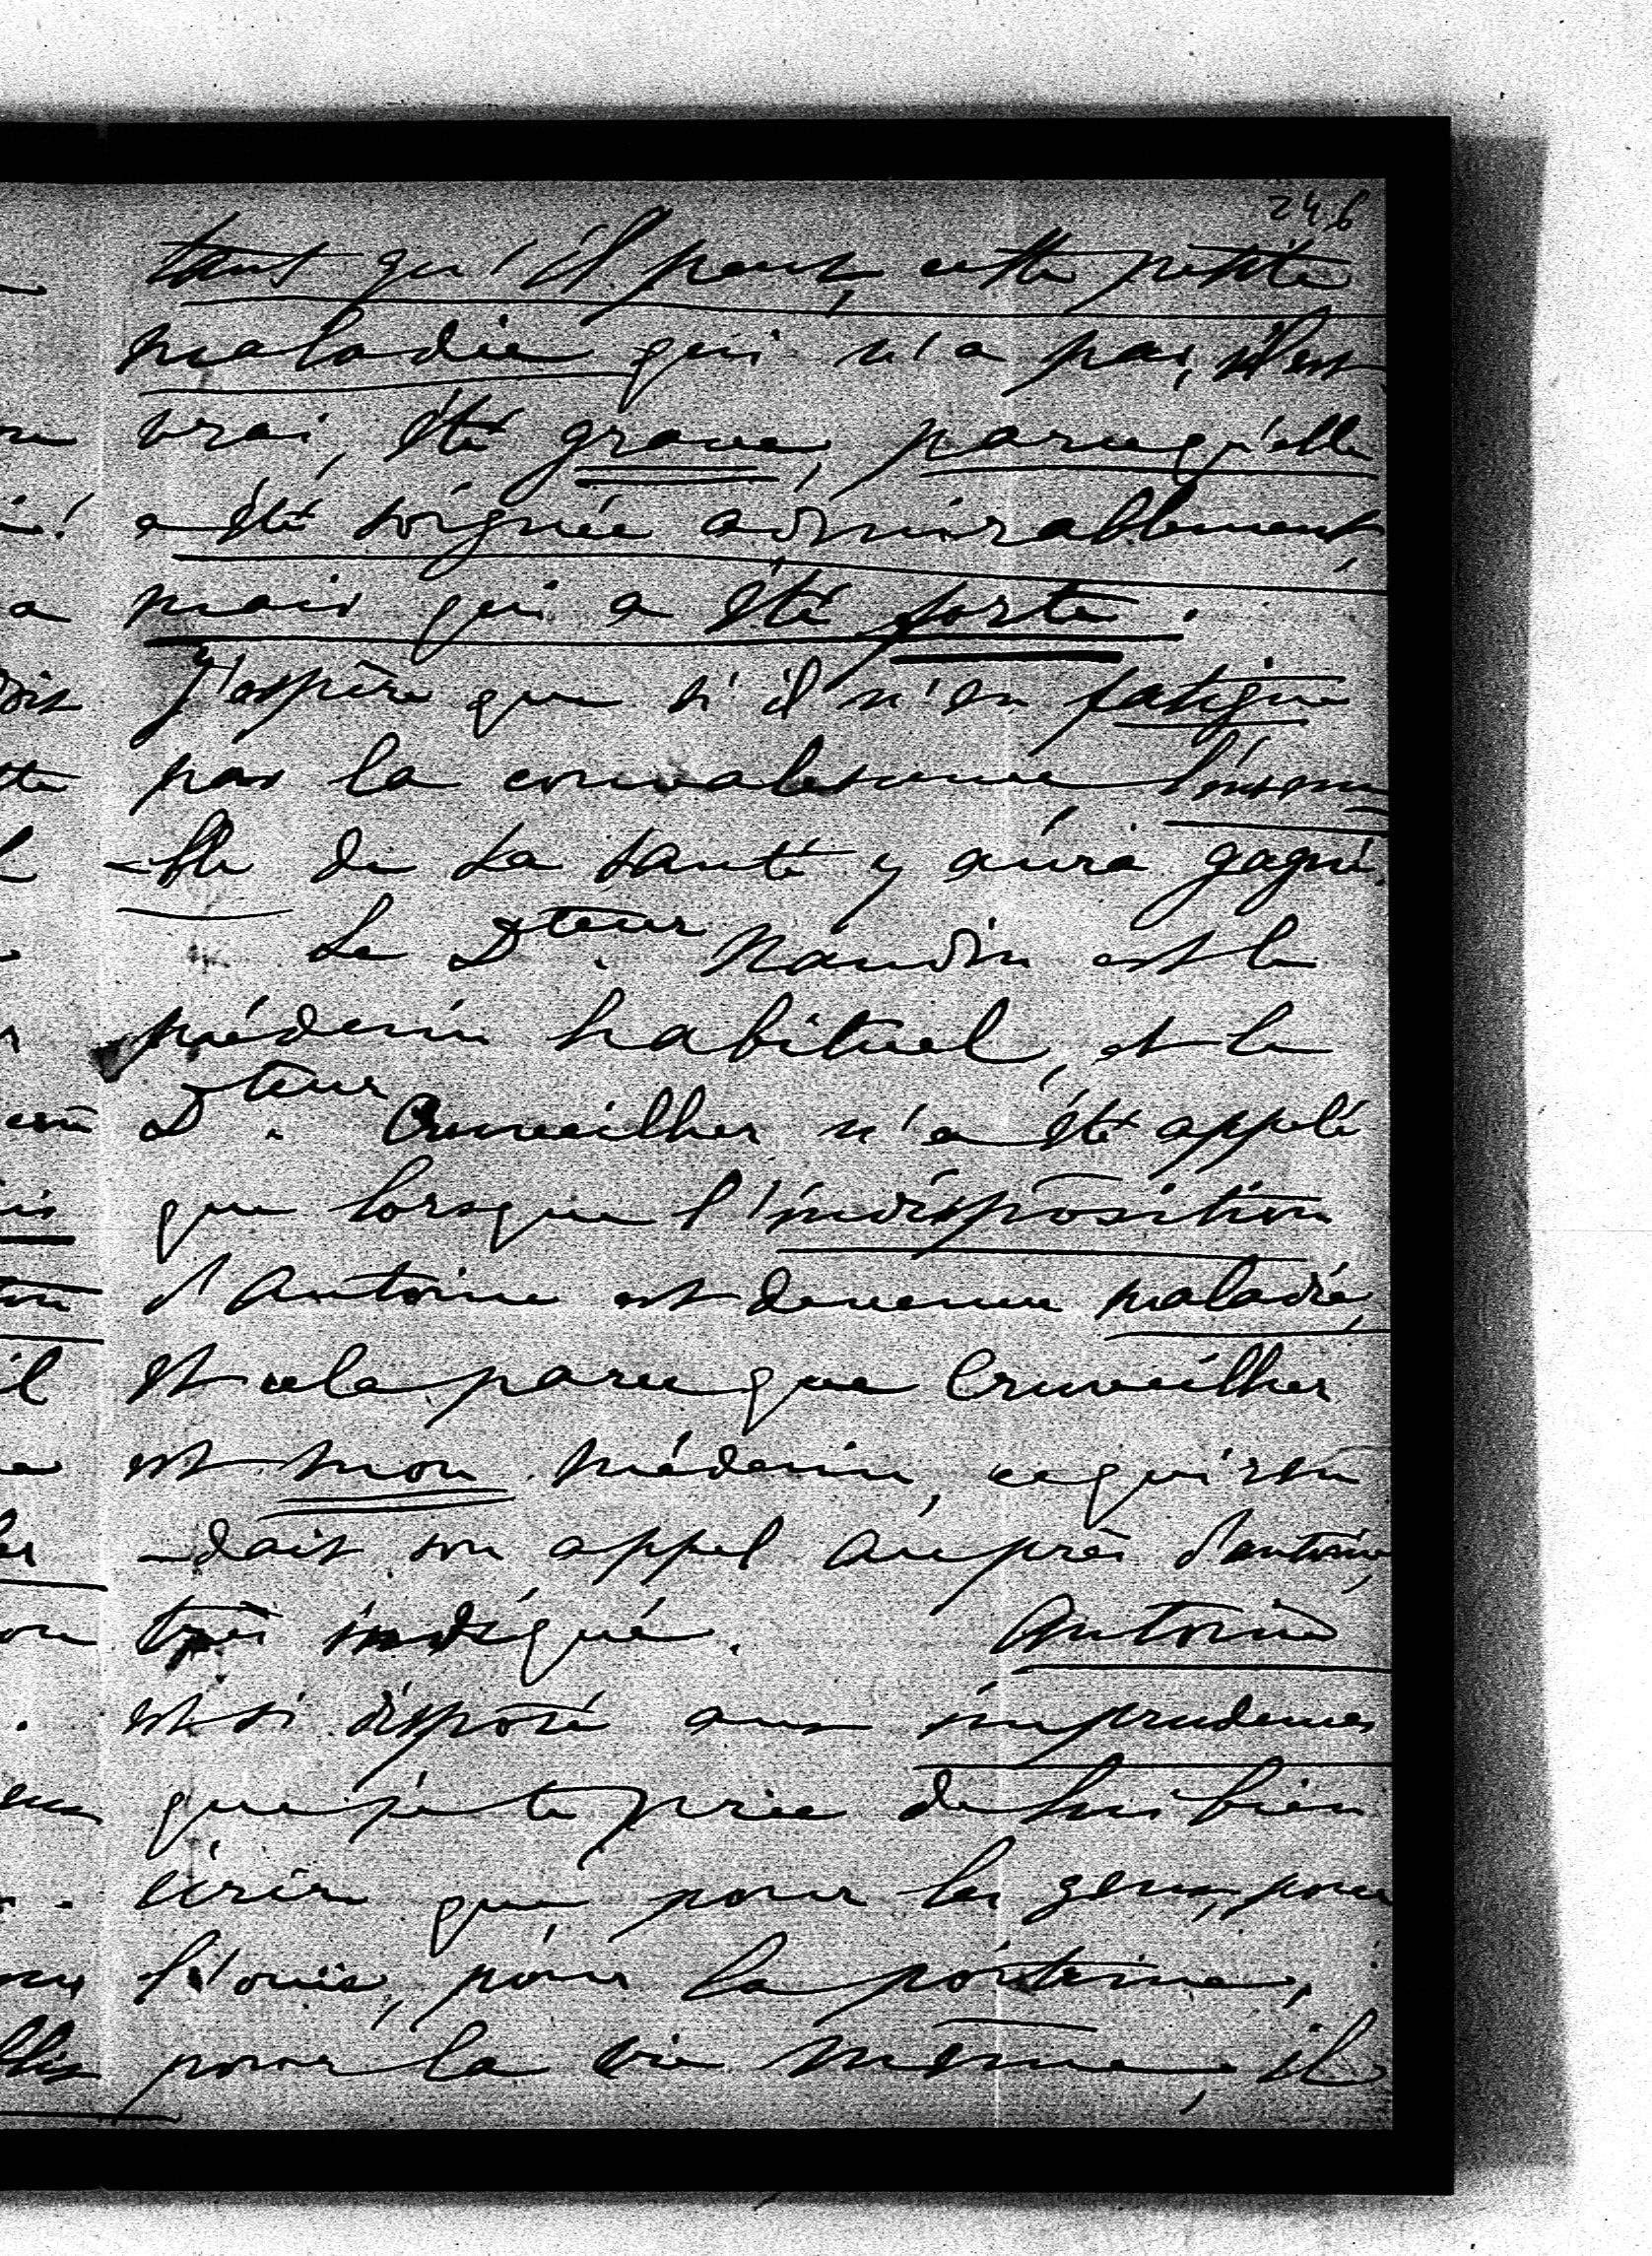 246
tant qu'il peut, cette petite
maladie qui n'a pas, il est
vrai, été grave, parcequ'elle
a été soignée admirablement,
mais qui a été forte.
J'espère que s'il n'en fatigue
pas la convalescence, l'ensem
-ble de sa santé y aura gagné.
Le Dteur. Naudin est le
médecin habituel, et le
Dteur. Cruveilher n'a été appelé
que lorsque l'indisposition
d'Antoine est devenue maladie,
et cela parce que Cruveilher
est mon médecin, ce qui ren
-dait son appel auprès d'antoine,
très indiqué. Antoine
est si disposé aux imprudences
que je te prie de lui bien
écrire que pour les yeux, pour
l'ouïe, pour la poitrine,
pour la vie même, il